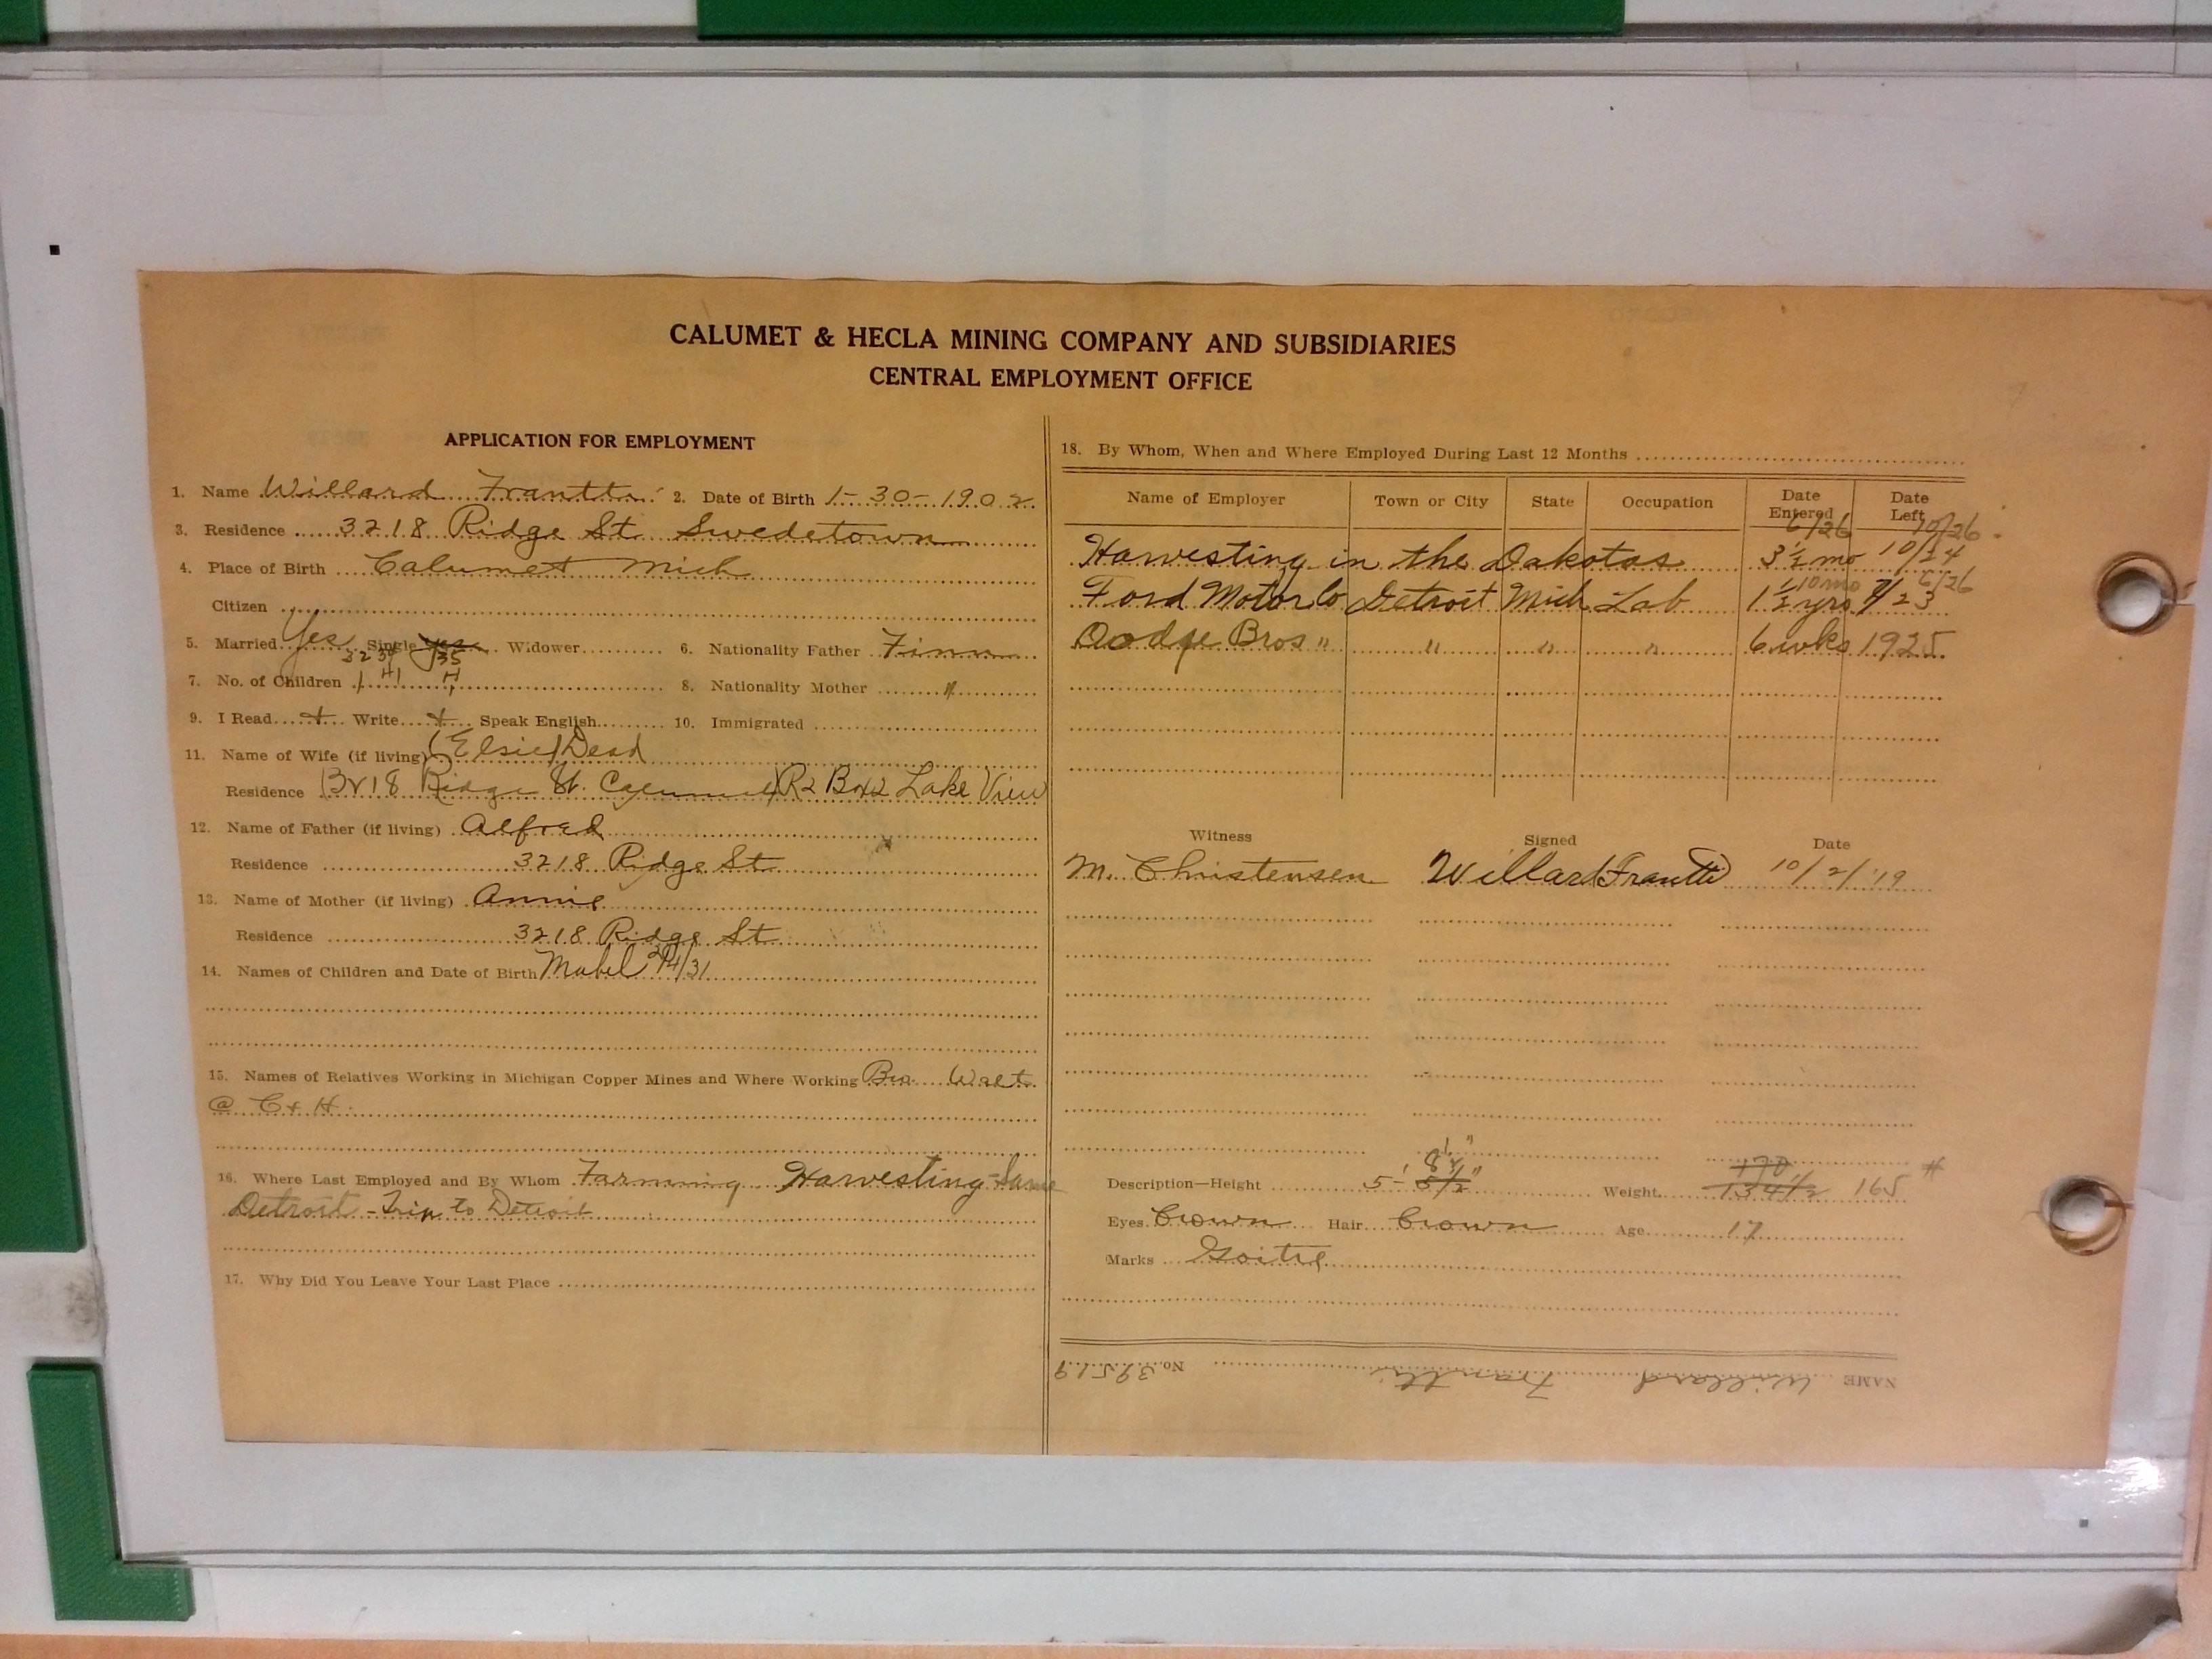 CALUMET & HECLA MINING COMPANY AND SUBSIDIARIES
CENTRAL EMPLOYMENT OFFICE
APPLICATION FOR EMPLOYMENT
1. Name Willard Frantti 2. Date of Birth 1-30-1902
3. Residence 3218 Ridge St. Swedetown
4. Place of Birth Calumet Mich
Citizen
5. Married Yes Single yes Widower 6. Nationality Father Finn
32 34 35
7. No. of Children 1 H1 H 8. Nationality Mother "
9. I Read + Write + Speak English 10. Immigrated
11. Name of Wife (if living) (Elsie) Dead
Residence (3218 Ridge St. Calumet) R2 Box2 Lake View
12. Name of Father (if living) Alfred
Residence 3218 Ridge St
13. Name of Mother (if living) Annie
Residence 3218 Ridge St
14. Names of Children and Date of Birth Mabel /31
15. Names of Relatives Working in Michigan Copper Mines and Where Working Bro Walt
@ C & H.
16. Where Last Employed and By Whom Farming Harvesting - Same
Detroit - Trip to Detroit
17. Why Did You Leave Your Last Place
18. By Whom, When and Where Employed During Last 12 Months
Name of Employer Town or City State Occupation Date Entered Date Left
6/26 10/26
Harvesting in the Dakotas 3 1/2 mo 10/24
10 mo 6/26
Ford Motor Co Detroit Mich Lab 1 1/2 yrs 9/23
Dodge Bros " " " " 6 wks 1925
Witness Signed Date
M. Christensen Willard Frantti 10/2/'19
8 1/4"
170
Description—Height 5'- 8 1/2" Weight 134 1/2 165 #
Eyes Brown Hair Brown Age 17
Marks Goitre
NAME Willard Frantti No. 39519